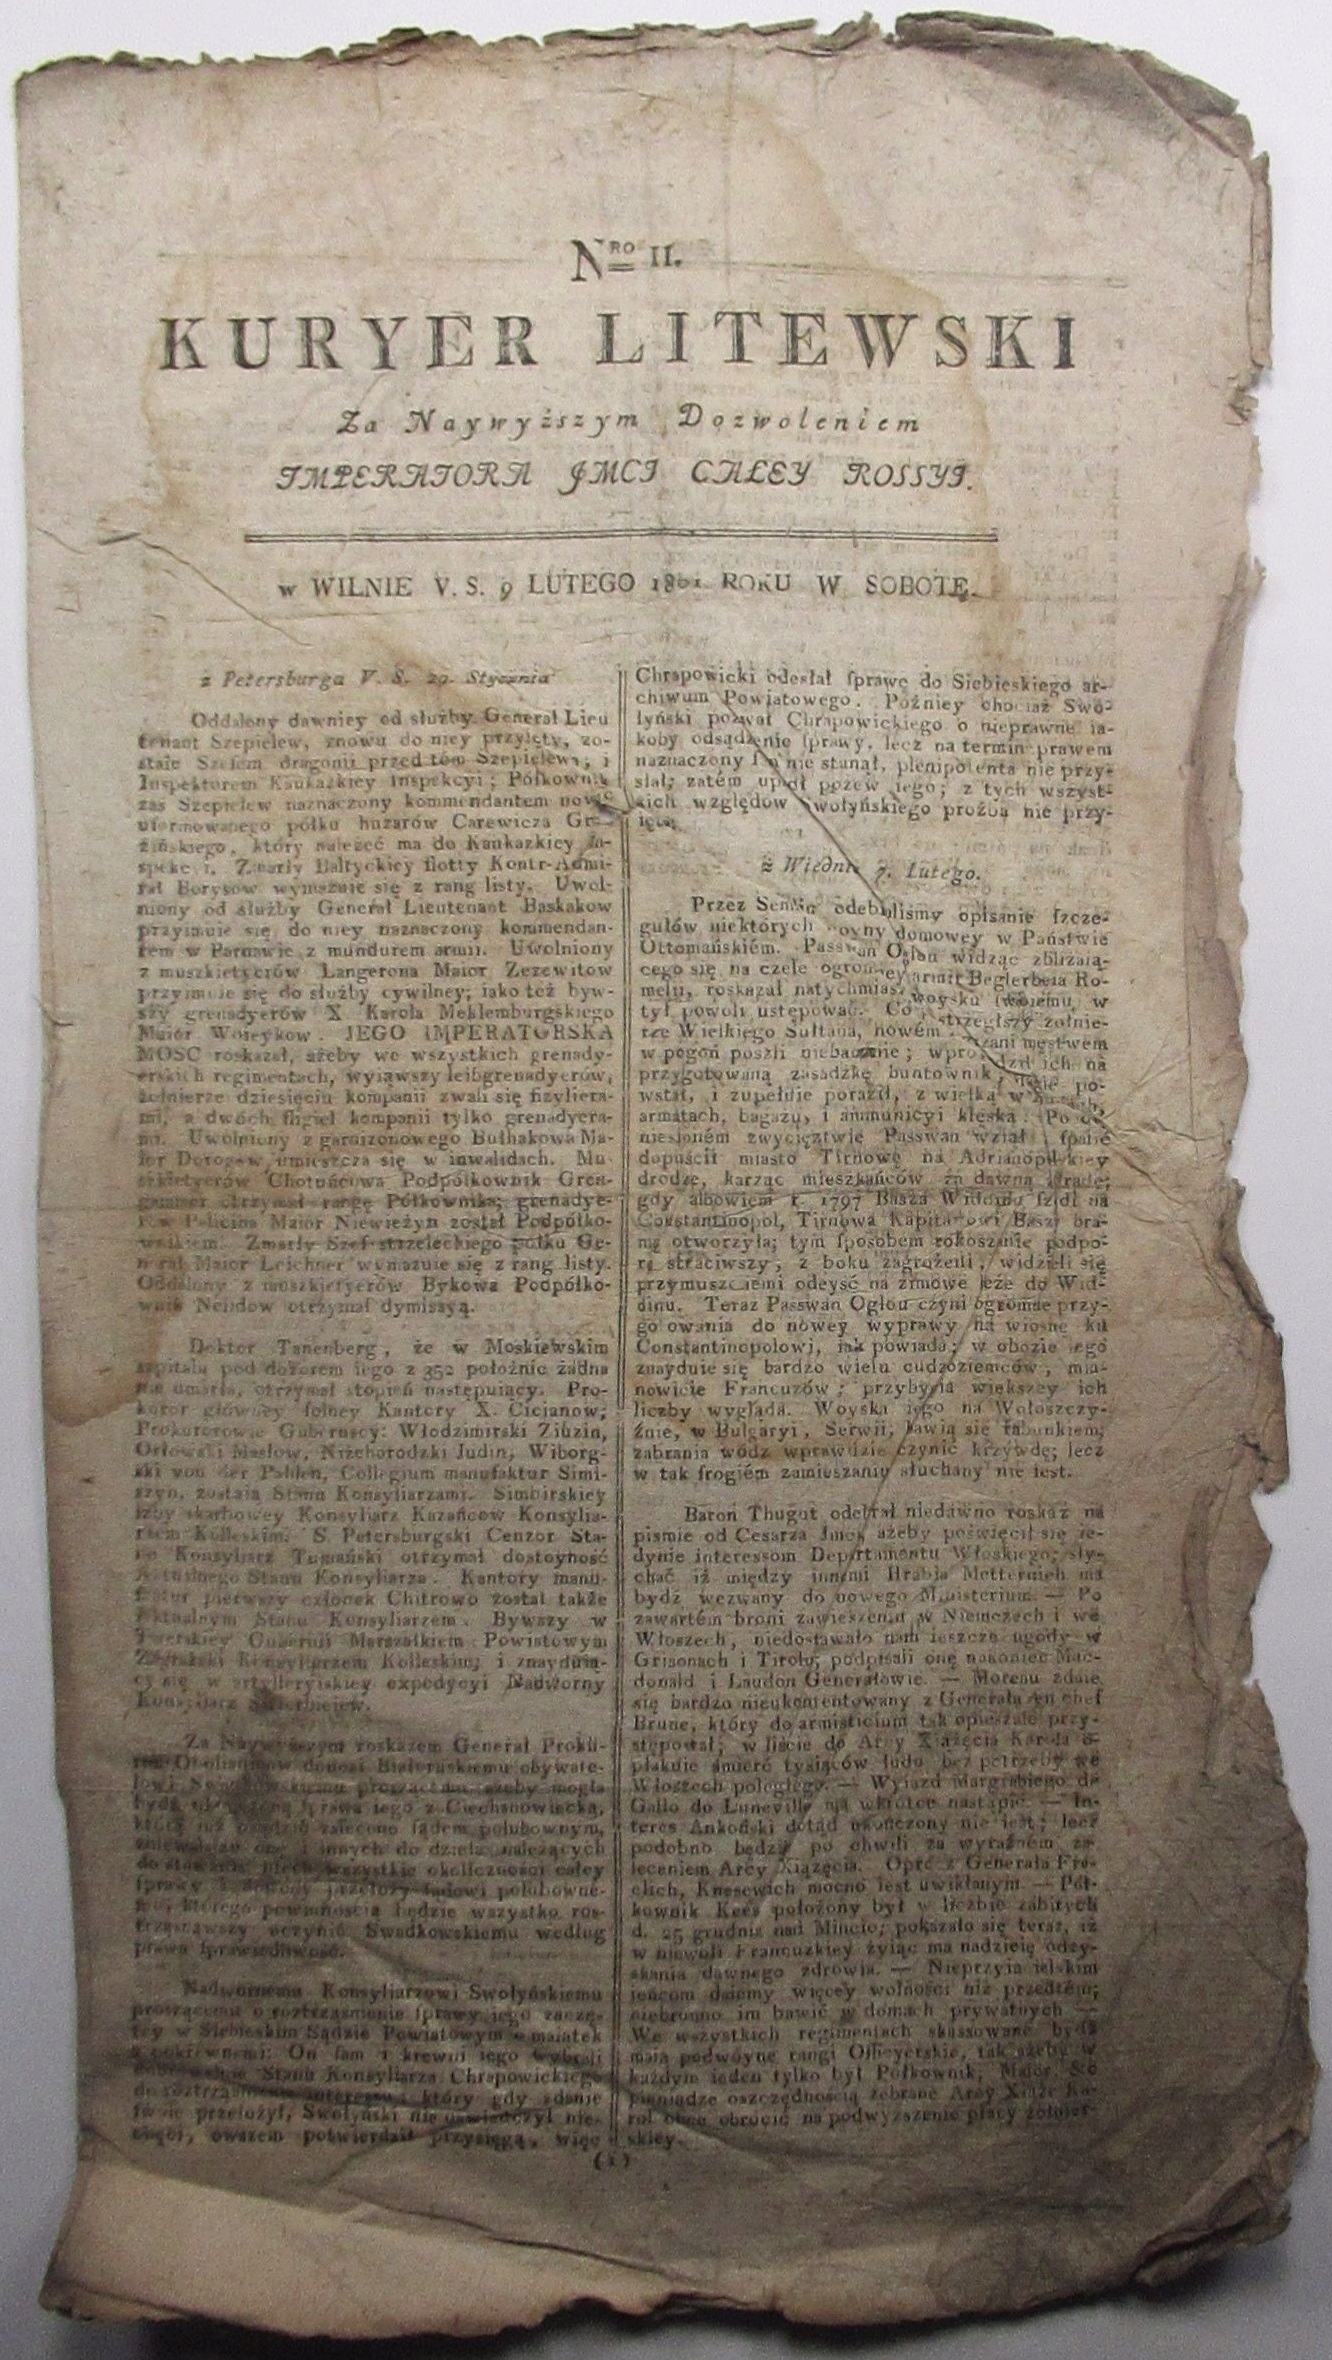 Nro II.
KURYER LITEWSKI
Za Naywyższym Dozwoleniem
IMPERATORA JMCI CAŁEY ROSSYI.
w WILNIE V. S. 9 LUTEGO 1801 ROKU W SOBOTĘ.
z Petersburga V. S. 29. Stycznia
Oddalony dawniey od służby Generał Lieu
tenant Szepielew, znowu do niey przyięty, zo-
staie Szefem dragonii przed tém Szepielewa, i
Inspektorem Kaukazkiey Inspekcyi; Półkownik
zaś Szepielew naznaczony kommendantem nowo
uformowanego półku huzarów Carewicza Gru-
zińskiego, który należeć ma do Kaukazkiey In-
spekcyi. Zmarły Baltyckiey flotty Kontr-Admi-
rał Borysow wymazuie się z rang listy. Uwol-
niony od służby Generał Lieutenant Baskakow
przyimuie się do niey naznaczony kommendan-
tem w Parnawie z mundurem armii. Uwolniony
z muszkietyerów Langerona Maior Zezewitow
przyimuie się do służby cywilney; iako też byw-
szy grenadyerów X. Karola Meklemburgskiego
Maior Woieykow. JEGO IMPERATORSKA
MOSC roskazał, ażeby we wszystkich grenady-
erskich regimentach, wyiąwszy leibgrenadyerów,
żołnierze dziesięciu kompanii zwali się fizyliera-
mi, a dwóch fligiel kompanii tylko grenadyera-
mi. Uwolniony z garnizonowego Bułhakowa Ma-
ior Dorogow umieszcza się w inwalidach. Mu-
szkietyerów Podpółkownik Gren-
gammer otrzymał rangę Półkownika; grenadye-
rów Maior Niewieżyn został Podpółko-
wnikiem. Zmarły Szef strzeleckiego półku Ge-
nerał Maior Leichner wymazuie się z rang listy.
Oddalony z muszkietyerów Bykowa Podpółko-
wnik Neudow otrzymał dymissyą.
Doktor Tanenberg, że w Moskiewskim
szpitalu pod dozorem iego z 352 położnic żadna
nie umarła, otrzymał stopień następuiący. Pro-
kuror główney solney Kantory X. Cicianow;
Prokurorowie Gubernscy: Włodzimirski Ziuzin,
Orłowski Masłow, Niżehorodzki Judin, Wiborg-
ski von der Pahlen, Collegium manufaktur Simi-
szyn, zostaią Stanu Konsyliarzami. Simbirskiey
izby skarbowey Konsyliarz Kazańcow Konsylia-
rzem Kolleskim. S. Petersburgski Cenzor Sta-
nu Konsyliarz Tumański otrzymał dostoyność
Aktualnego Stanu Konsyliarza. Kantory manu-
faktur pierwszy członek Chitrowo został także
Aktualnym Stanu Konsyliarzem. Bywszy w
Twerskiey Gubernii Marszałkiem Powiatowym
Konsyliarzem Kolleskim; i znayduią-
cy się w artylleryiskiey expedycyi Nadworny
Konsyliarz
Za Naywyższym roskazem Generał Proku-
ror donosi Białoruskiemu obywate-
lowi proszącemu, ażeby mogła
bydź sprawa iego z Ciechanowiecką,
która iuż zalecono sądem polubownym,
i innych do dzieła należących
do stawienia, niech wszystkie okoliczności całey
sprawy przełoży sądowi polubowne-
mu, którego powinnością będzie wszystko ros-
trząsnąwszy uczynić Swadkowskiemu według
prawa sprawiedliwość.
Nadwornemu Konsyliarzowi Swołyńskiemu
proszącemu o roztrząśnienie sprawy iego zaczę-
tey w Siebieskim Sądzie Powiatowym o maiątek
z pokrewnemi: On sam i krewni iego wybrali
Stanu Konsyliarza Chrapowickiego
do roztrząśnienia interessu; który gdy zdanie
swoie przełożył, Swołyński nie oświadczył nie-
chęci, owszem potwierdził przysięgą, więc
Chrapowicki odesłał sprawę do Siebieskiego ar-
chiwum Powiatowego. Późniey chociaż Swo-
łyński pozwał Chrapowickiego o nieprawne ia-
koby odsądzenie sprawy, lecz na termin prawem
naznaczony sam nie stanął, plenipotenta nie przy-
słał; zatém upadł pozew iego; z tych wszyst-
kich względów Swołyńskiego prożba nie przy-
ięta.
z Wiednia 7. Lutego.
Przez Semlin odebraliśmy opisanie szcze-
gułów niektórych woyny domowey w Państwie
Ottomańskiém. Passwan Oglou widząc zbliżaią-
cego się na czele ogromney armii Beglerbeia Ro-
melii, roskazał natychmiast woysku swoiemu w
tył powoli ustępować. Co postrzegłszy żołnie-
rze Wielkiego Sułtana, nowém wzani męstwem
w pogoń poszli niebacznie; wprowadził ich na
przygotowaną zasadzkę buntownik, tedie po-
wstał, i zupełnie poraził, z wielką w
armatach, bagażu, i ammunicyi klęską. Po od-
niesioném zwycięztwie Passwan wziął i spalić
dopuścił miasto Tirnowę na Adrianopolskiey
drodze, karząc mieszkańców za dawną zdradę;
gdy albowiem r. 1797 Basza Widdinu szedł na
Constantinopol, Tirnowa Kapitanowi Baszy bra-
mę otworzyła; tym sposobem rokoszanie podpo-
rę straciwszy, z boku zagrożeni, widzieli się
przymuszonemi odeyść na zimowe leże do Wid-
dinu. Teraz Passwan Oglou czyni ogromne przy-
gotowania do nowey wyprawy na wiosnę ku
Constantinopolowi, iak powiada; w obozie iego
znayduie się bardzo wielu cudzoziemców, mia-
nowicie Francuzów; przybycia większey ich
liczby wygląda. Woyska iego na Wołoszczy-
źnie, w Bulgaryi, Serwii, bawią się rabunkiem;
zabrania wódz wprawdzie czynić krzywdę; lecz
w tak srogiém zamieszaniu słuchany nie iest.
Baron Thugut odebrał niedawno roskaz na
piśmie od Cesarza Jmci, ażeby poświęcił się ie-
dynie interessom Departamentu Włoskiego; sły-
chać iż między innemi Hrabia Metternich ma
bydź wezwany do nowego Ministerium. — Po
zawartém broni zawieszeniu w Niemczech i we
Włoszech, niedostawało nam ieszcze ugody w
Grisonach i Tirolu; podpisali onę nakoniec Mac-
donald i Laudon Generałowie. — Moreau zdaie
się bardzo nieukontentowany z Generała en chef
Brune, który do armisticium tak opieszale przy-
stępował; w liście do Arcy Xiążęcia Karola o-
płakuie śmierć tysiąców ludu bez potrzeby we
Włoszech poległego. — Wyiazd Margrabiego de
Gallo do Luneville ma wkrótce nastąpić. — In-
teres Ankoński dotąd ukończony nie iest; lecz
podobno będzie po chwili za wyraźném za-
leceniem Arcy Xiążęcia. Oprócz Generała Fre-
elich, Knesewich mocno iest uwikłanym. — Pół-
kownik Kees położony był w liczbie zabitych
d. 25 grudnia nad Mincio; pokazało się teraz, iż
w niewoli Francuzkiey żyiąc ma nadzieię odzy-
skania dawnego zdrowia. — Nieprzyiacielskim
ieńcom daiemy więcey wolności niż przedtém;
niebronno im bawić w domach prywatnych —
We wszystkich regimentach skassowane bydź
maią podwóyne rangi Officyerskie, tak ażeby w
każdym ieden tylko był Półkownik, Maior, &c
pieniądze oszczędnością zebrane Arcy Xiąże Ka-
rol chce obrócić na podwyższenie płacy żołnier-
skiey.
(1)